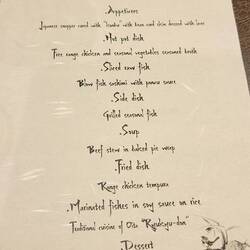 Appetizers
Japanese snapper cured with "kombu" with bean curd skin dressed with
.Hot pot dish
Free range chicken and seasonal vegetables seasoned broth
.Sliced raw fish
Blow fish sashimi with ponzu sauce
.Side dish
Grilled seasonal fish
.Soup
Beef stew in baked pie wrap
.Fried dish
Range chicken tempura
.Marinated fishes in soy sauce on rice
Traditional cuisine of Oita "Ryukyu-don"
.Dessert